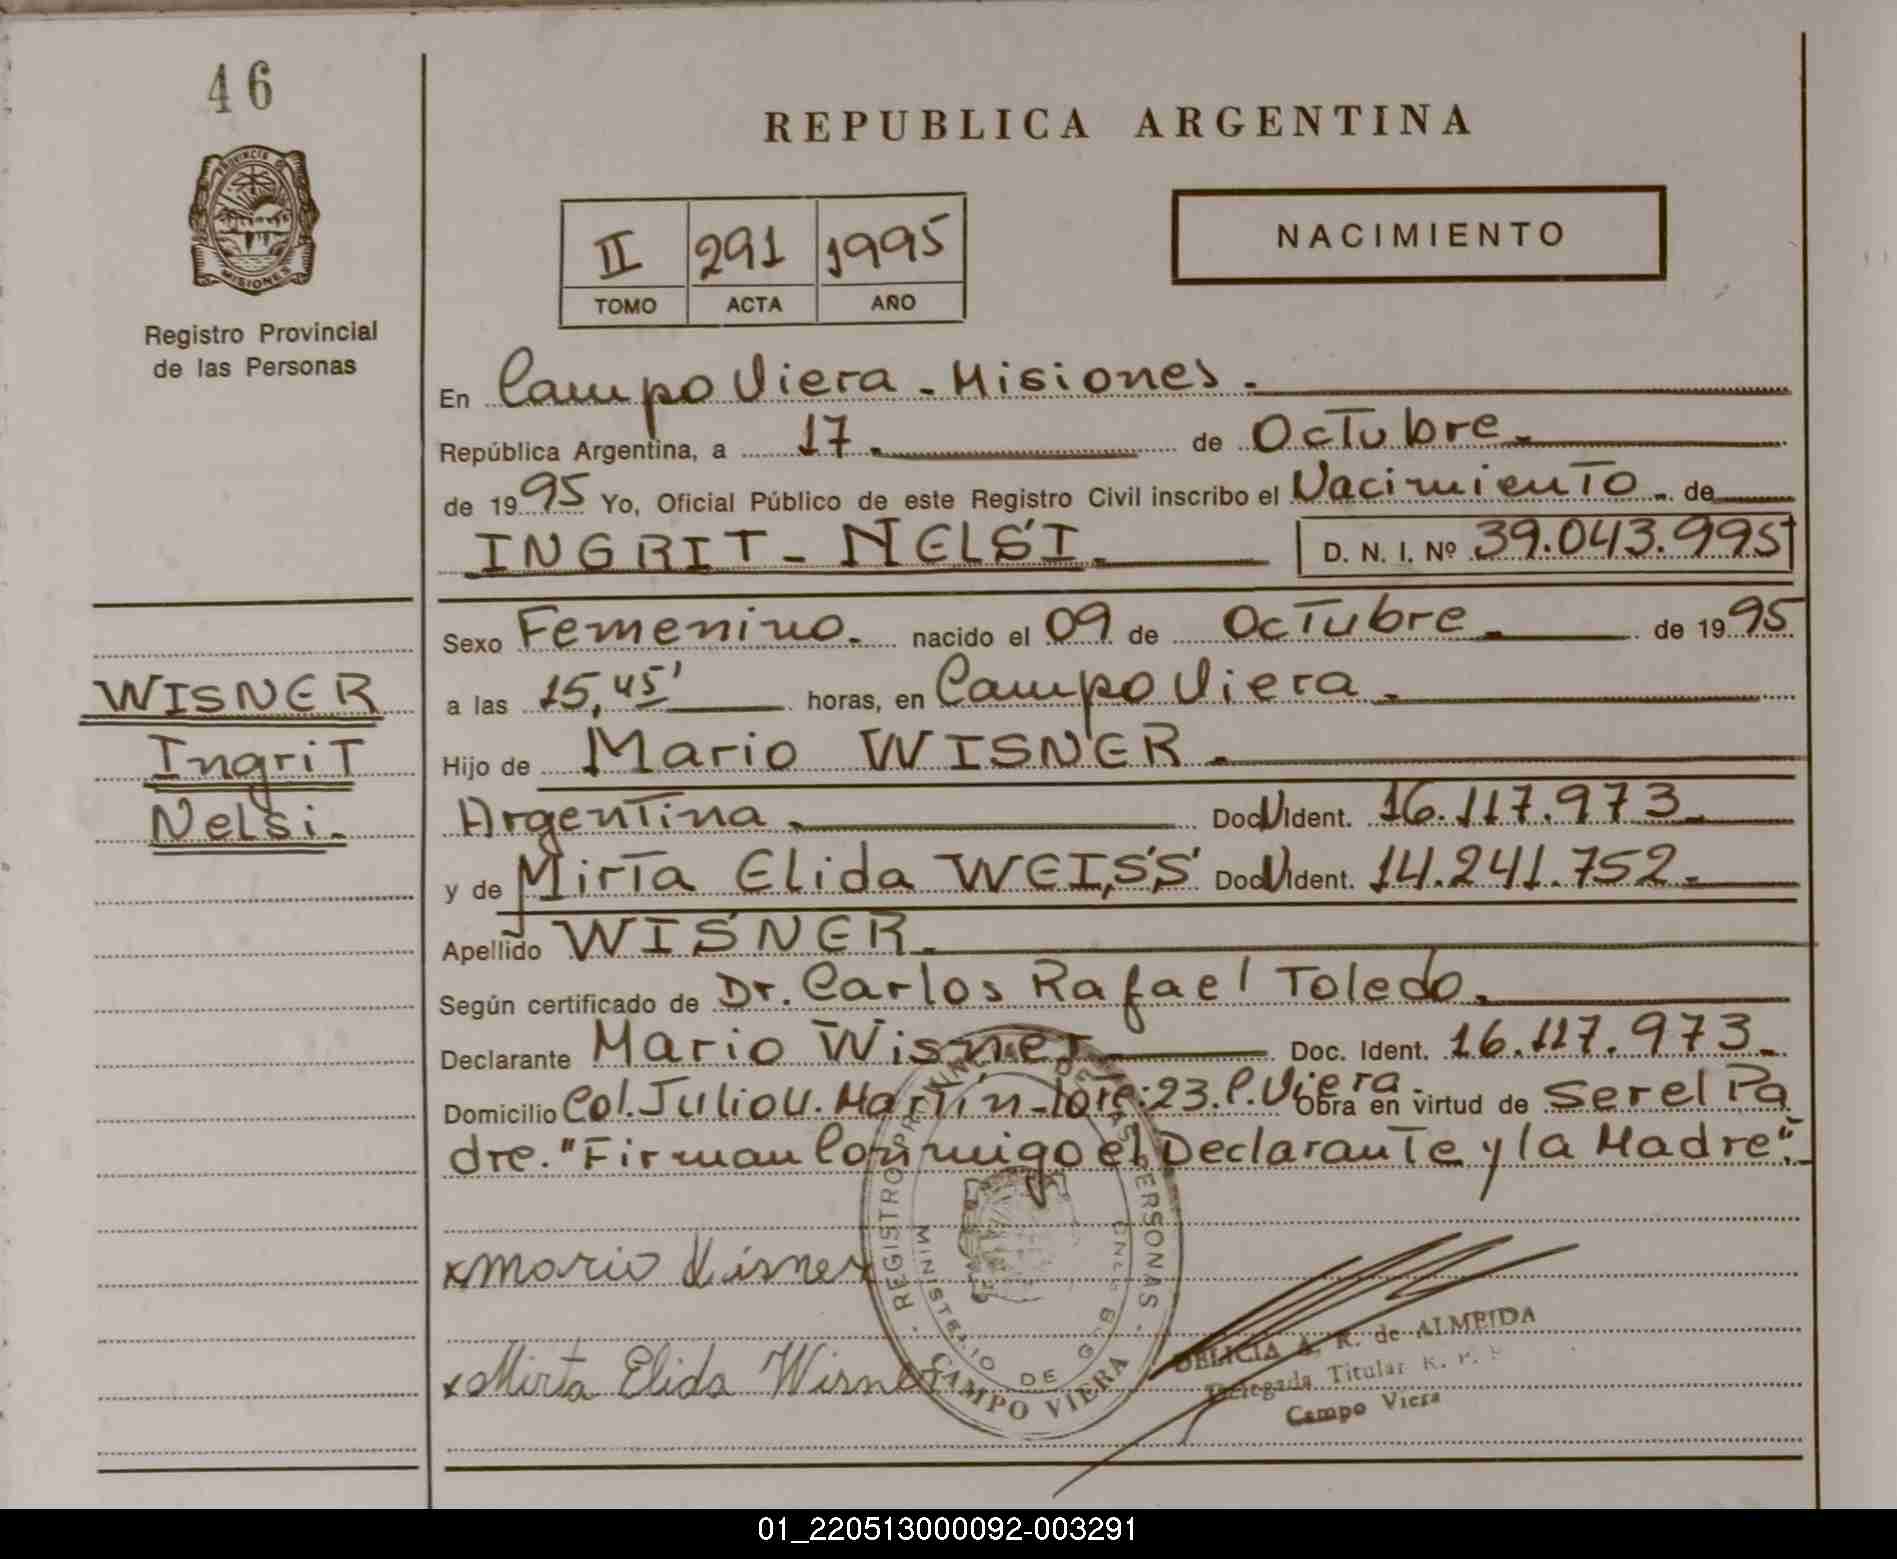 46
REPUBLICA ARGENTINA
PROVINCIA DE
MISIONES
Registro Provincial
de las Personas
II 291 1995
TOMO ACTA AÑO
NACIMIENTO
En Campo Viera - Misiones.
República Argentina, a 17. de Octubre.
de 1995 Yo, Oficial Público de este Registro Civil inscribo el Nacimiento de
INGRIT - NELSI. D. N. I. Nº 39.043.995
Sexo Femenino. nacido el 09 de Octubre de 1995
a las 15,45' horas, en Campo Viera.
WISNER
Ingrit
Nelsi.
Hijo de Mario WISNER.
Argentina Doc. Ident. 16.117.973
y de Mirta Elida WEISS Doc. Ident. 14.241.752.
Apellido WISNER.
Según certificado de Dr. Carlos Rafael Toledo.
Declarante Mario Wisner Doc. Ident. 16.117.973.
Domicilio Col. Julio U. Martín - lote: 23. C. Viera. Obra en virtud de ser el Pa
dre. "Firman Conmigo el Declarante y la Madre".
x Mario Wisner
x Mirta Elida Wisner
REGISTRO PROVINCIAL DE LAS PERSONAS
MINISTERIO DE G.
CAMPO VIERA
DELICIA A. R. de ALMEIDA
Delegada Titular R. P.
Campo Viera
01_220513000092-003291